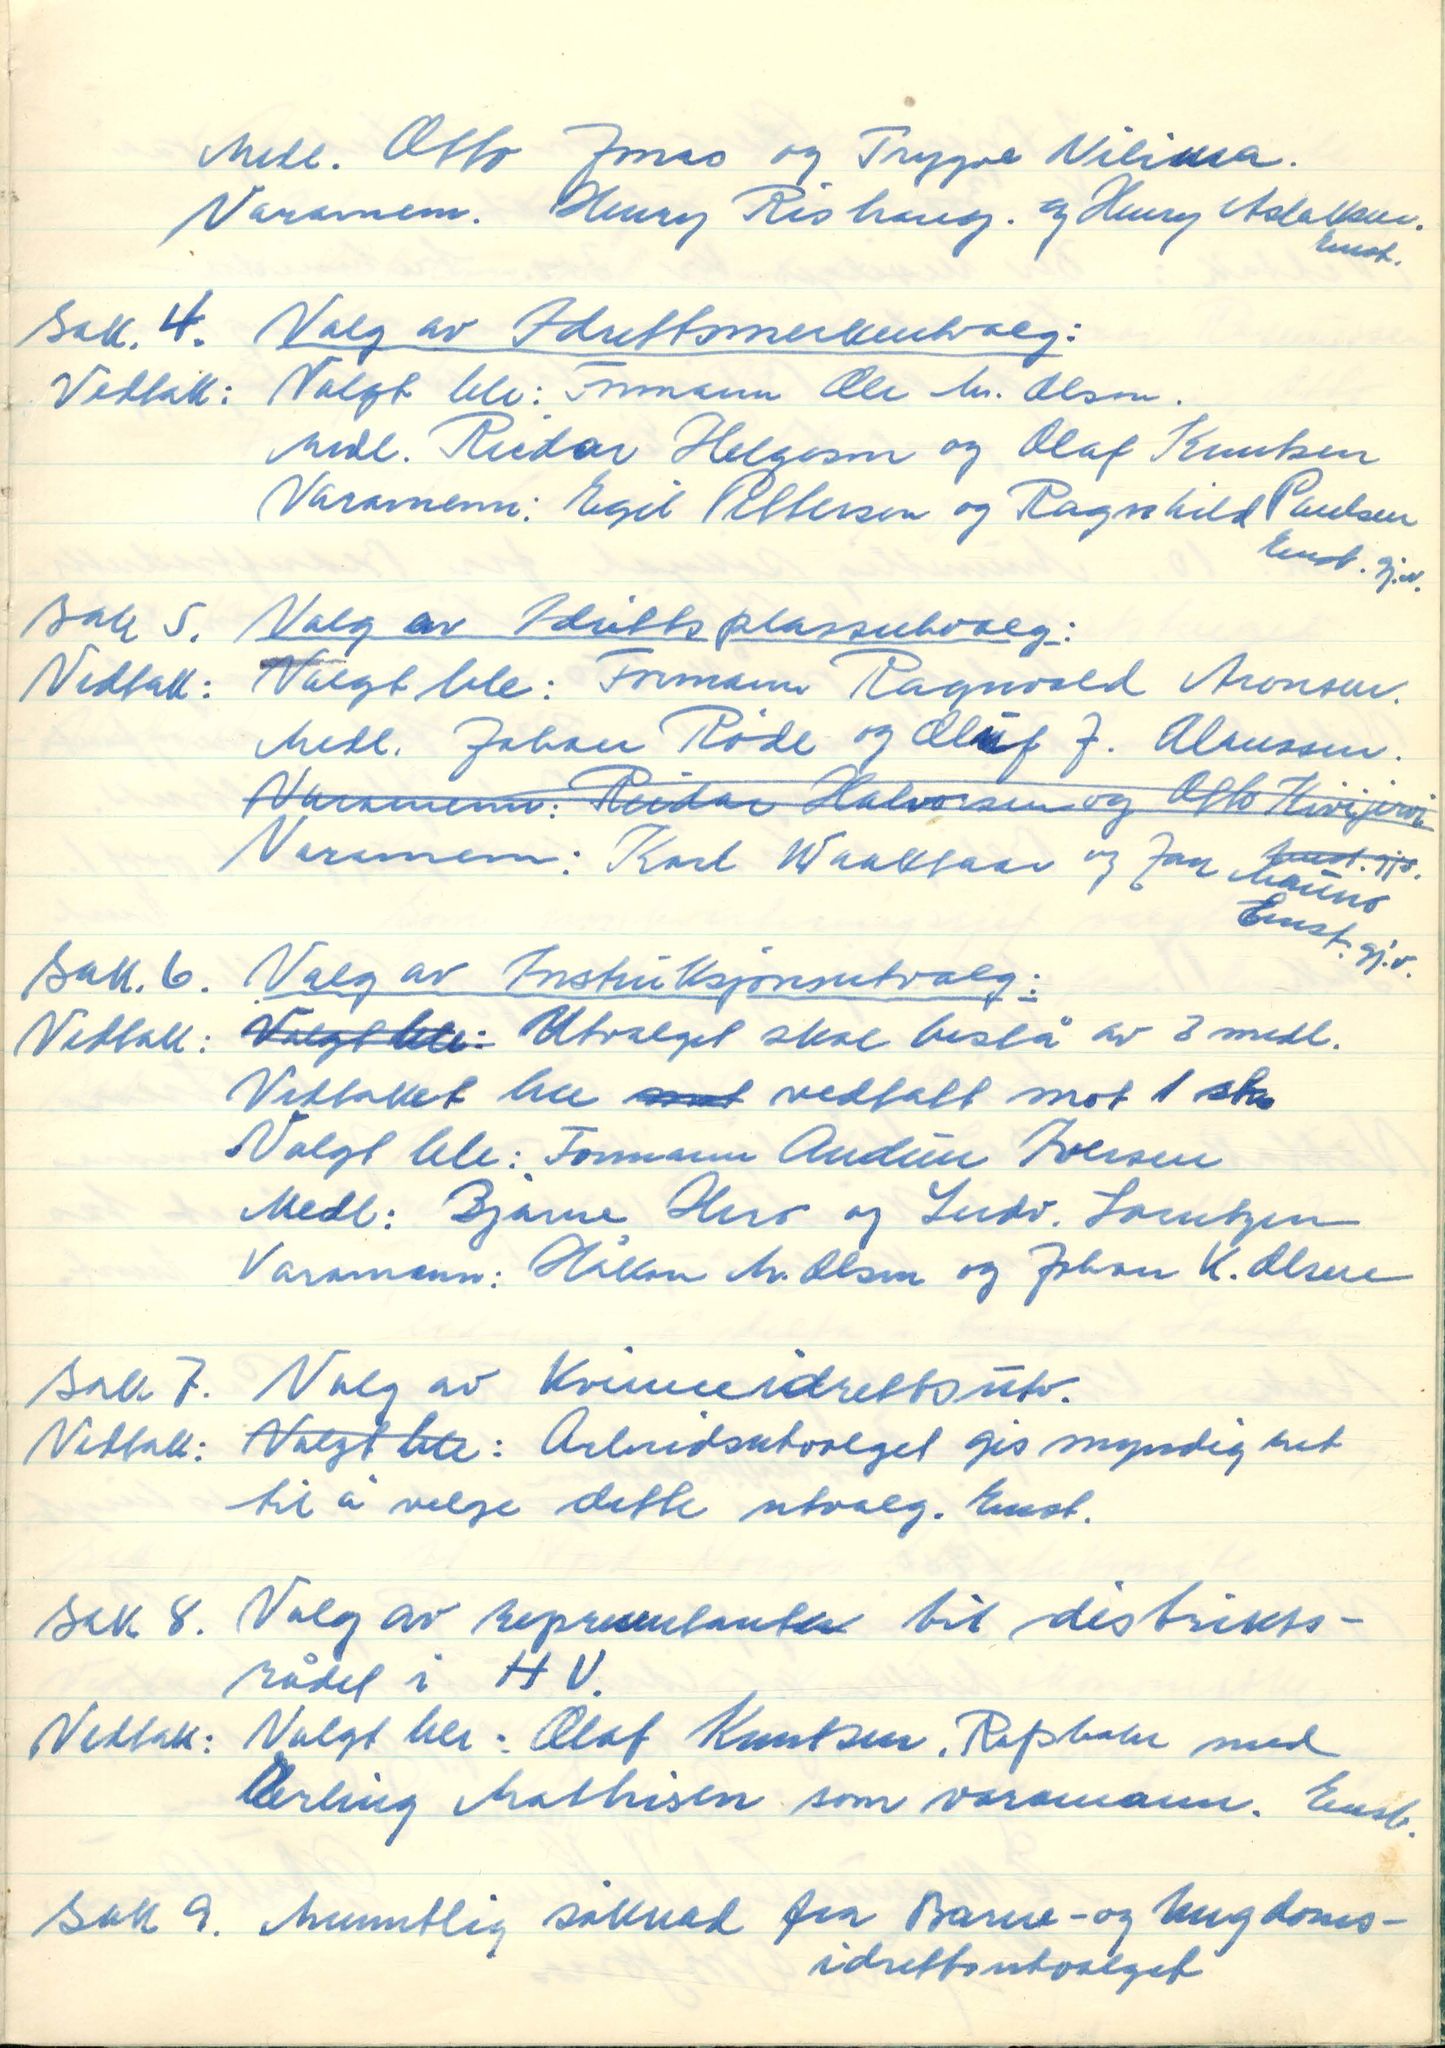 Medl. Otto Jonas og Trygve Nilima.
Varamenn. Henry Rishaug. og Henry Aslaksen.
Enst.
Sak. 4. Valg av Idrettsmerkeutvalg:
Vedtak: Valgt ble: Formann Ole M. Olsen.
Medl. Reidar Helgesen og Olaf Knutsen
Varamenn: Egil Pettersen og Ragnhild Paulsen
Enst. gj.v.
Sak 5. Valg av Idrettsplassutvalg:
Vedtak: Valgt ble: Formann Ragnvald Aronsen.
Medl. Johan Röde og Oluf J. Claussen.
Varamenn: Reidar Halvorsen og Otto Kivijervi
Enst. gj.v.
Varamenn: Karl Waaktaar og Jan Mauno
Enst. gj.v.
Sak. 6. Valg av Instruksjonsutvalg:
Vedtak: Valgt ble: Utvalget skal bestå av 3 medl.
Vedtaket ble mot vedtatt mot 1 st.
Valgt ble: Formann Audun Iversen
Medl: Bjarne Hero og Ludv. Lorntzen
Varamenn: Håkon M. Olsen og Johan K. Olsen
Sak 7. Valg av Kvinneidrettsutv.
Vedtak: Valgt ble: Arbeidsutvalget gis myndighet
til å velge dette utvalg. Enst.
Sak 8. Valg av representanter til distrikts-
rådet i HV.
Vedtak: Valgt ble: Olaf Knutsen, Repsholm med
Erling Mathisen som varamann. Enst.
Sak 9. Muntlig söknad fra Barne- og Ungdoms-
idrettsutvalget